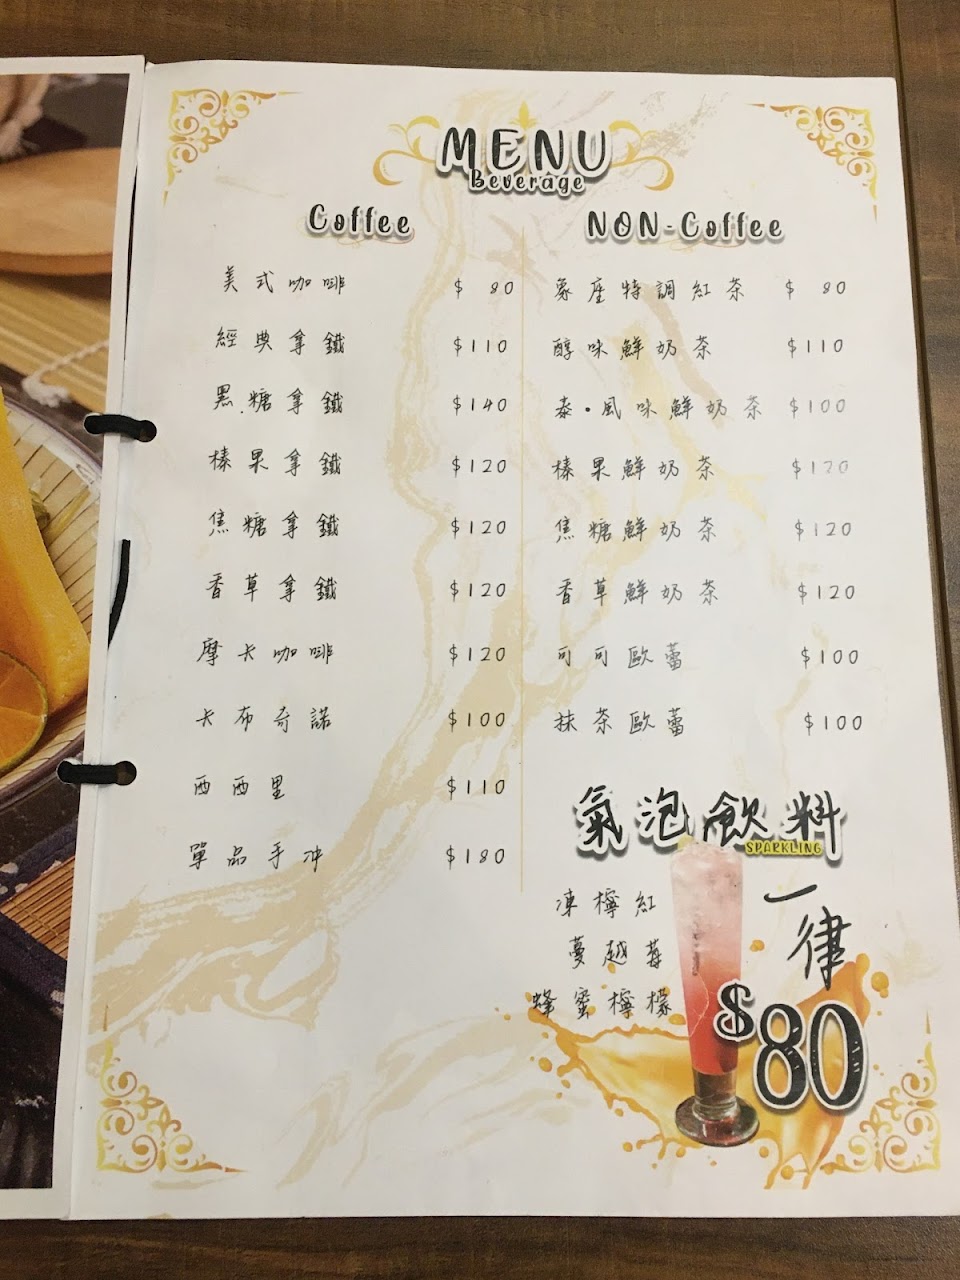 MENU
Beverage
Coffee
美式咖啡 $ 80
經典拿鐵 $110
黑糖拿鐵 $140
榛果拿鐵 $120
焦糖拿鐵 $120
香草拿鐵 $120
摩卡咖啡 $120
卡布奇諾 $100
西西里 $110
單品手沖 $180
NON-Coffee
象座特調紅茶 $ 80
醇味鮮奶茶 $110
泰·風味鮮奶茶 $100
榛果鮮奶茶 $120
焦糖鮮奶茶 $120
香草鮮奶茶 $120
可可歐蕾 $100
抹茶歐蕾 $100
氣泡飲料
SPARKLING
凍檸紅
蔓越莓
蜂蜜檸檬
一律
$80